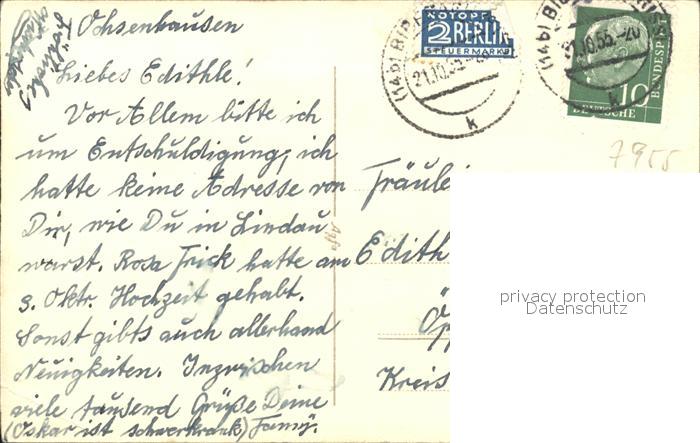 Ochsenhausen
Liebes Edithle!
Vor Allem bitte ich
um Entschuldigung, ich
hatte keine Adresse von
Dir, wie Du in Lindau
warst. Rosa Frick hatte am
3. Oktr. Hochzeit gehabt.
Sonst gibts auch allerhand
Neuigkeiten. Inzwischen
viele tausend Grüße Deine
(Oskar ist schwerkrank) Fanny.
NOTOPFER
2 BERLIN
STEUERMARKE
(14b) BIBERACH
21.10.55
k
(14b)
21.10.55.-20
k
10
DEUTSCHE
BUNDESPOST
7955
Fräulei
Edith
Kreis
privacy protection
Datenschutz